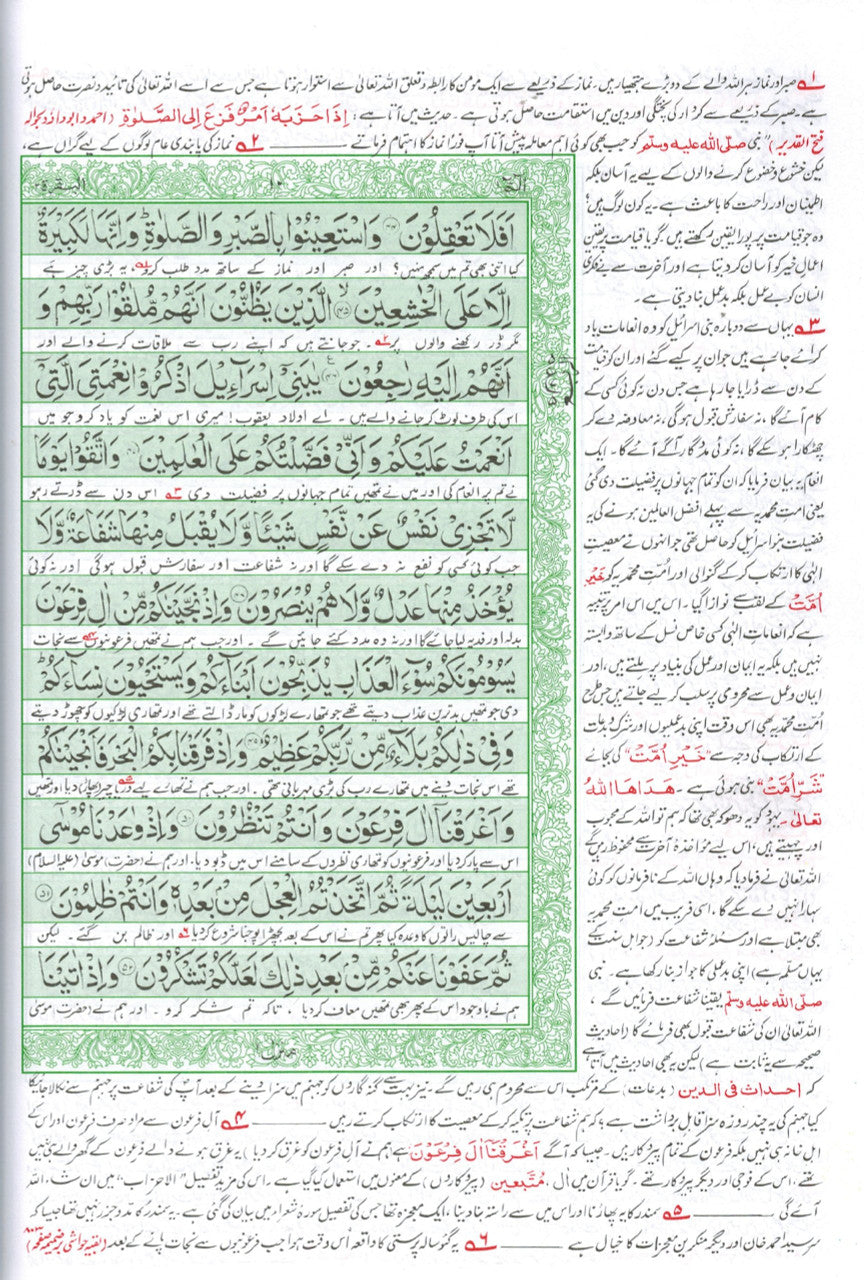 ۱ صبر اور نماز ہر اللہ والے کے دو بڑے ہتھیار ہیں۔ نماز کے ذریعے سے ایک مومن کا رابطہ و تعلق اللہ تعالیٰ سے استوار ہوتا ہے جس سے اسے اللہ تعالیٰ کی تائید و نصرت حاصل ہوتی
ہے۔ صبر کے ذریعے سے کردار کی پختگی اور دین میں استقامت حاصل ہوتی ہے۔ حدیث میں آتا ہے: إِذَا حَزَبَهُ أَمْرٌ فَزِعَ إِلَى الصَّلٰوةِ (احمد و ابو داؤد بحوالہ
فتح القدیر) "نبی صلی اللہ علیہ وسلم کو جب بھی کوئی اہم معاملہ پیش آتا آپ فوراً نماز کا اہتمام فرماتے ۲ نماز کی پابندی عام لوگوں کے لیے گراں ہے،
لیکن خشوع و خضوع کرنے والوں کے لیے یہ آسان بلکہ
اطمینان اور راحت کا باعث ہے۔ یہ کون لوگ ہیں؟
وہ جو قیامت پر پورا یقین رکھتے ہیں۔ گویا قیامت پر یقین
اعمال خیر کو آسان کر دیتا ہے اور آخرت سے بے فکری
انسان کو بے عمل بلکہ بدعمل بنا دیتی ہے۔
۳ یہاں سے دوبارہ بنی اسرائیل کو وہ انعامات یاد
کرائے جا رہے ہیں جو ان پر کیے گئے اور ان کو قیامت
کے دن سے ڈرایا جا رہا ہے جس دن نہ کوئی کسی کے
کام آئے گا، نہ سفارش قبول ہوگی، نہ معاوضہ دے کر
چھٹکارا ہو سکے گا، نہ کوئی مددگار آگے آئے گا۔ ایک
انعام یہ بیان فرمایا کہ ان کو تمام جہانوں پر فضیلت دی گئی
یعنی امت محمدیہ سے پہلے افضل العالمین ہونے کی یہ
فضیلت بنو اسرائیل کو حاصل تھی جو انہوں نے معصیت
الٰہی کا ارتکاب کر کے گنوالی اور امت محمدیہ کو خَيْرِ
اُمَّتْ کے لقب سے نوازا گیا۔ اس میں اس امر پر تنبیہ
ہے کہ انعامات الٰہی کسی خاص نسل کے ساتھ وابستہ
نہیں ہیں بلکہ یہ ایمان اور عمل کی بنیاد پر ملتے ہیں، اور
ایمان و عمل سے محرومی پر سلب کر لیے جاتے ہیں جس طرح
امت محمدیہ بھی اس وقت اپنی بدعملیوں اور شرک و بدعات
کے ارتکاب کی وجہ سے "خَيْرِ اُمَّتْ" کی بجائے
"شَرِّ اُمَّتْ" بنی ہوئی ہے۔ هَدَاهَا اللهُ
تعالٰی۔ یہود کو یہ دھوکہ بھی تھا کہ ہم تو اللہ کے محبوب
اور چہیتے ہیں، اس لیے مؤاخذۂ آخرت سے محفوظ رہیں گے
اللہ تعالیٰ نے فرما دیا کہ وہاں اللہ کے نافرمانوں کو کوئی
سہارا نہیں دے سکے گا، اسی فریب میں امت محمدیہ
بھی مبتلا ہے اور مسئلہ شفاعت کو (جو اہل سنت کے
یہاں مسلمہ ہے) اپنی بدعملی کا جواز بنا رکھا ہے۔ نبی
صلی اللہ علیہ وسلم یقیناً شفاعت فرمائیں گے،
اللہ تعالیٰ ان کی شفاعت قبول بھی فرمائے گا (احادیث
صحیحہ سے یہ ثابت ہے) لیکن یہ بھی احادیث میں آتا ہے
البقرة ۲
۱۰
الٓمّٓ ۱
اَفَلَا تَعْقِلُوْنَ ﴿۴۴﴾ وَاسْتَعِيْنُوْا بِالصَّبْرِ وَالصَّلٰوةِ ؕ وَاِنَّهَا لَكَبِيْرَةٌ
کیا اتنی بھی تم میں سمجھ نہیں؟ اور صبر اور نماز کے ساتھ مدد طلب کرو ۱ یہ بڑی چیز ہے
اِلَّا عَلَى الْخٰشِعِيْنَ ﴿۴۵﴾ الَّذِيْنَ يَظُنُّوْنَ اَنَّهُمْ مُّلٰقُوْا رَبِّهِمْ وَ
مگر ڈر رکھنے والوں پر ۲۔ جو جانتے ہیں کہ اپنے رب سے ملاقات کرنے والے اور
اَنَّهُمْ اِلَيْهِ رٰجِعُوْنَ ﴿۴۶﴾ يٰبَنِيْٓ اِسْرَآءِيْلَ اذْكُرُوْا نِعْمَتِيَ الَّتِيْٓ
اس کی طرف لوٹ کر جانے والے ہیں۔ اے اولاد یعقوب! میری اس نعمت کو یاد کرو جو میں
اَنْعَمْتُ عَلَيْكُمْ وَاَنِّيْ فَضَّلْتُكُمْ عَلَى الْعٰلَمِيْنَ ﴿۴۷﴾ وَاتَّقُوْا يَوْمًا
نے تم پر انعام کی اور میں نے تمھیں تمام جہانوں پر فضیلت دی ۳ اس دن سے ڈرتے رہو
لَّا تَجْزِيْ نَفْسٌ عَنْ نَّفْسٍ شَيْـًٔا وَّلَا يُقْبَلُ مِنْهَا شَفَاعَةٌ وَّلَا
جب کوئی کسی کو نفع نہ دے سکے گا اور نہ شفاعت اور سفارش قبول ہوگی اور نہ کوئی
يُؤْخَذُ مِنْهَا عَدْلٌ وَّلَا هُمْ يُنْصَرُوْنَ ﴿۴۸﴾ وَاِذْ نَجَّيْنٰكُمْ مِّنْ اٰلِ فِرْعَوْنَ
بدلہ اور فدیہ لیا جائے گا اور نہ وہ مدد کئے جائیں گے۔ اور جب ہم نے تمھیں فرعونیوں ۴ سے نجات
يَسُوْمُوْنَكُمْ سُوْٓءَ الْعَذَابِ يُذَبِّحُوْنَ اَبْنَآءَكُمْ وَيَسْتَحْيُوْنَ نِسَآءَكُمْ ؕ
دی جو تمھیں بدترین عذاب دیتے تھے جو تمھارے لڑکوں کو مار ڈالتے تھے اور تمھاری لڑکیوں کو چھوڑ دیتے
وَفِيْ ذٰلِكُمْ بَلَآءٌ مِّنْ رَّبِّكُمْ عَظِيْمٌ ﴿۴۹﴾ وَاِذْ فَرَقْنَا بِكُمُ الْبَحْرَ فَاَنْجَيْنٰكُمْ
تھے اس نجات دینے میں تمھارے رب کی بڑی مہربانی تھی۔ اور جب ہم نے تمھارے لیے دریا چیر (پھاڑ) دیا ۵ اور تمھیں
وَاَغْرَقْنَآ اٰلَ فِرْعَوْنَ وَاَنْتُمْ تَنْظُرُوْنَ ﴿۵۰﴾ وَاِذْ وٰعَدْنَا مُوْسٰٓى
اس سے پار کر دیا اور فرعونیوں کو تمھاری نظروں کے سامنے اس میں ڈبو دیا۔ اور ہم نے (حضرت) موسیٰ (علیہ السلام)
اَرْبَعِيْنَ لَيْلَةً ثُمَّ اتَّخَذْتُمُ الْعِجْلَ مِنْۢ بَعْدِهٖ وَاَنْتُمْ ظٰلِمُوْنَ ﴿۵۱﴾
سے چالیس راتوں کا وعدہ کیا پھر تم نے اس کے بعد بچھڑا پوجنا شروع کر دیا ۶ اور ظالم بن گئے۔ لیکن
ثُمَّ عَفَوْنَا عَنْكُمْ مِّنْۢ بَعْدِ ذٰلِكَ لَعَلَّكُمْ تَشْكُرُوْنَ ﴿۵۲﴾ وَاِذْ اٰتَيْنَا
ہم نے باوجود اس کے پھر بھی تمھیں معاف کر دیا، تاکہ تم شکر کرو۔ اور ہم نے (حضرت) موسیٰ
منزل ۱
کہ احداث فی الدین (بدعات) کے مرتکب اس سے محروم ہی رہیں گے۔ نیز بہت سے گنہ گاروں کو جہنم میں سزا دینے کے بعد آپ کی شفاعت پر جہنم سے نکالا جائے گا
کیا جہنم کی یہ چند روزہ سزا قابل برداشت ہے؟ کہ ہم شفاعت پر تکیہ کر کے معصیت کا ارتکاب کرتے رہیں ۴ آل فرعون سے مراد صرف فرعون اور اس کے
اہل خانہ ہی نہیں بلکہ فرعون کے تمام پیروکار ہیں۔ جیسا کہ آگے اَغْرَقْنَا اٰلَ فِرْعَوْنَ ہے ہم نے آل فرعون کو غرق کر دیا) یہ غرق ہونے والے فرعون کے گھر والے ہی نہیں
تھے، اس کے فوجی اور دیگر پیروکار تھے۔ گویا قرآن میں اٰل، مُتَّبِعین (پیروکاروں) کے معنوں میں استعمال کیا گیا ہے۔ اس کی مزید تفصیل "الاحزاب" میں ان شاء اللہ
آئے گی۔ ۵ سمندر کا یہ پھاڑنا اور اس میں سے راستہ بنا دینا، ایک معجزہ تھا جس کی تفصیل سورۂ شعراء میں بیان کی گئی ہے۔ یہ سمندر کا مد و جزر نہیں تھا جیسا کہ
سر سید احمد خان اور دیگر منکرین معجزات کا خیال ہے ۶ یہ گئو سالہ پرستی کا واقعہ اس وقت ہوا جب فرعونیوں سے نجات پانے کے بعد (بقیہ حواشی بر ضمیمہ صفحہ